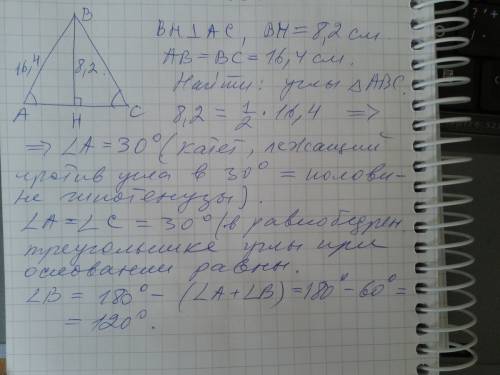 B
16,4
8,2
A
H
C
BH⊥AC, BH = 8,2 см.
AB = BC = 16,4 см.
Найти: углы △ABC.
8,2 = 1/2 · 16,4 =>
=> ∠A = 30° (катет, лежащий
против угла в 30° = полови-
не гипотенузы).
∠A = ∠C = 30° (в равнобедрен
треугольнике углы при
основании равны.
∠B = 180° - (∠A + ∠B) = 180° - 60° =
= 120°.